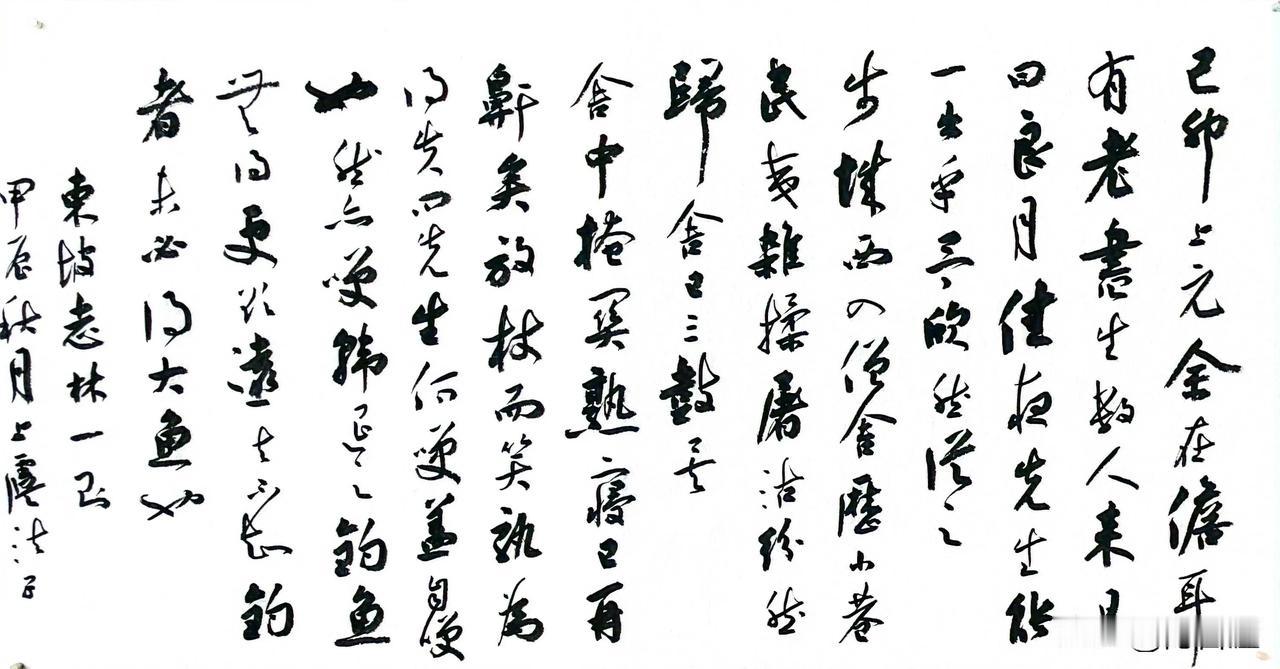 己卯上元余在儋耳
有老書生数人来
曰良月佳夜先生能
一出乎予欣然從之
步城西入僧舍歷小巷
民夷雜揉屠沽紛然
歸舍已三鼓矣
舍中掩関熟寢已再
鼾矣放杖而笑孰為
得失問先生何笑蓋自笑
也然亦笑韓退之釣魚
無得更欲遠去不知釣
者未必得大魚也
東坡志林一則
甲辰秋月上虞法